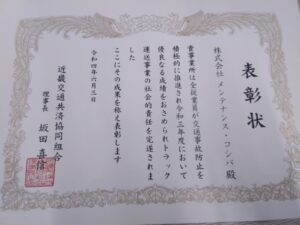 表彰状
株式会社 メンテナンス・コンバ 殿
貴事業所は全従業員が交通事故防止を
積極的に推進され令和三年度において
優良なる成績をおさめられトラック
運送事業の社会的責任を完遂されま
した
ここにその成果を称え表彰します
令和四年六月三日
近畿交通共済協同組合
理事長 坂田喜信